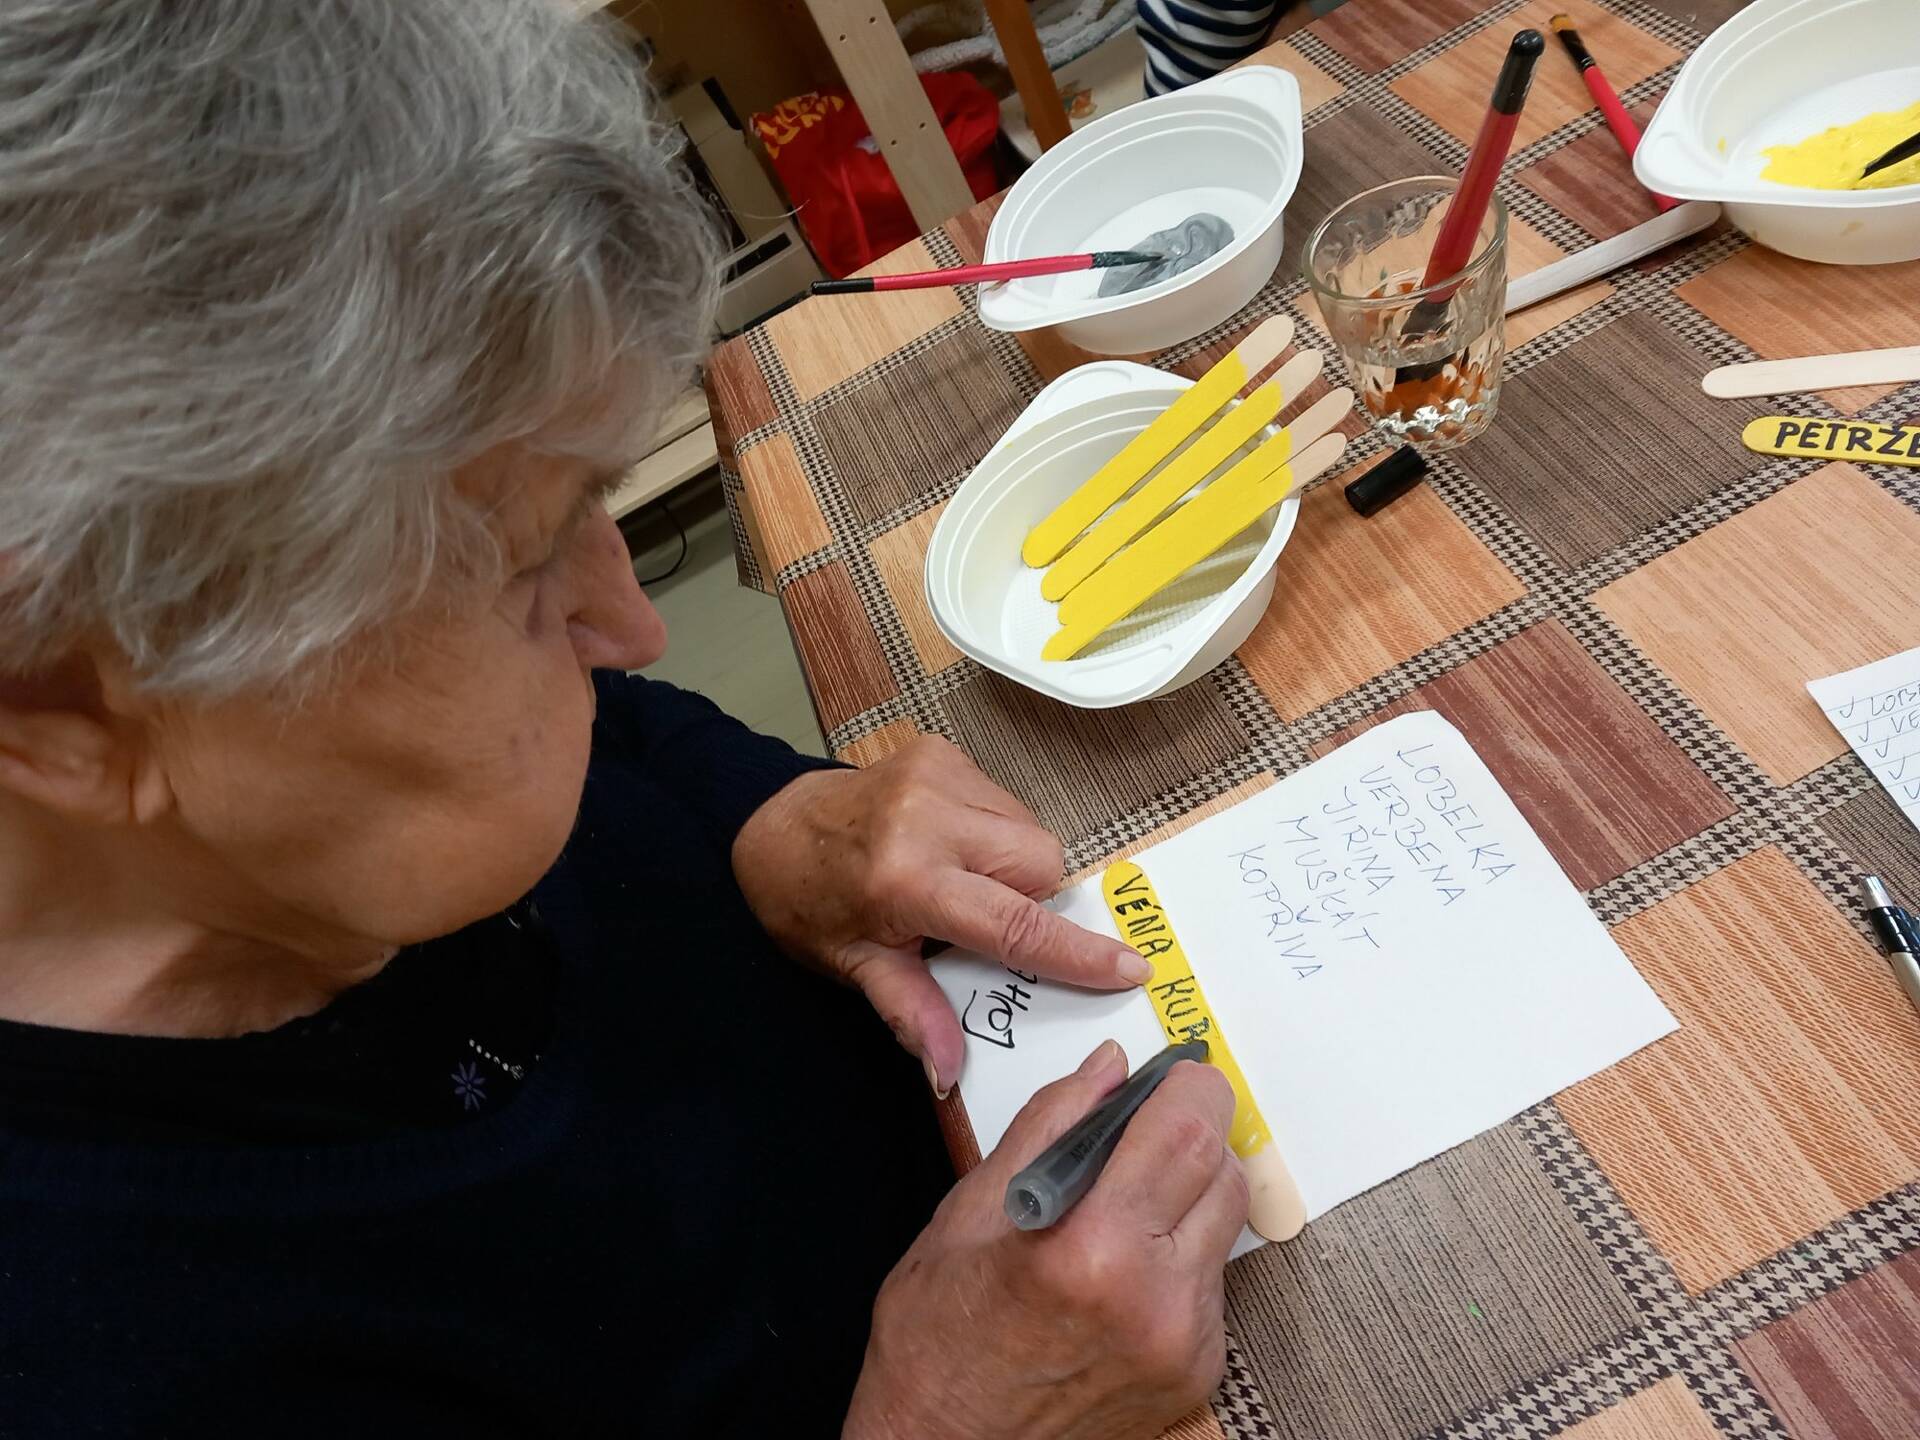 PETRŽE
LOBELKA
VERBENA
JIŘINA
MUŠKÁT
KOPŘIVA
VĚNA KUR
LOBE
VE